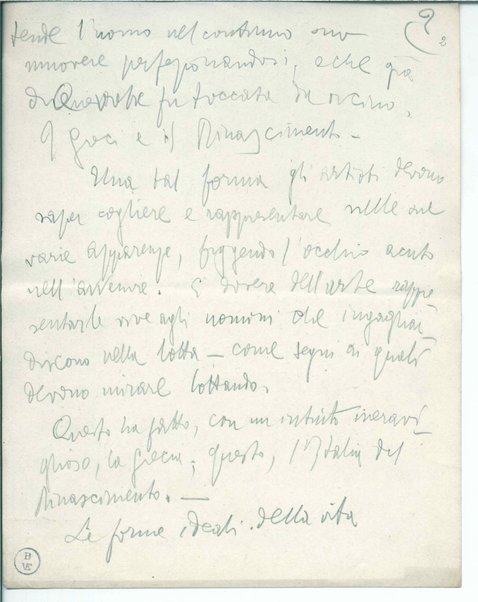 2
tende l'uomo nel continuo suo
muovere perfezionandosi, e che già
due volte fu toccata da vicino.
I Greci e il Rinascimento –
Una tal forma gli artisti devono
saper cogliere e rappresentare nelle sue
varie apparenze, figgendo l'occhio acuto
nell'avvenire. È dovere dell'arte rappre
sentarle vive agli uomini che ingagliar
discono nella lotta – come segni ai quali
devono mirare lottando.
Questo ha fatto, con un intuito meravi
glioso, la Grecia; questo, l'Italia del
Rinascimento. –
Le forme ideali della vita
B
VE